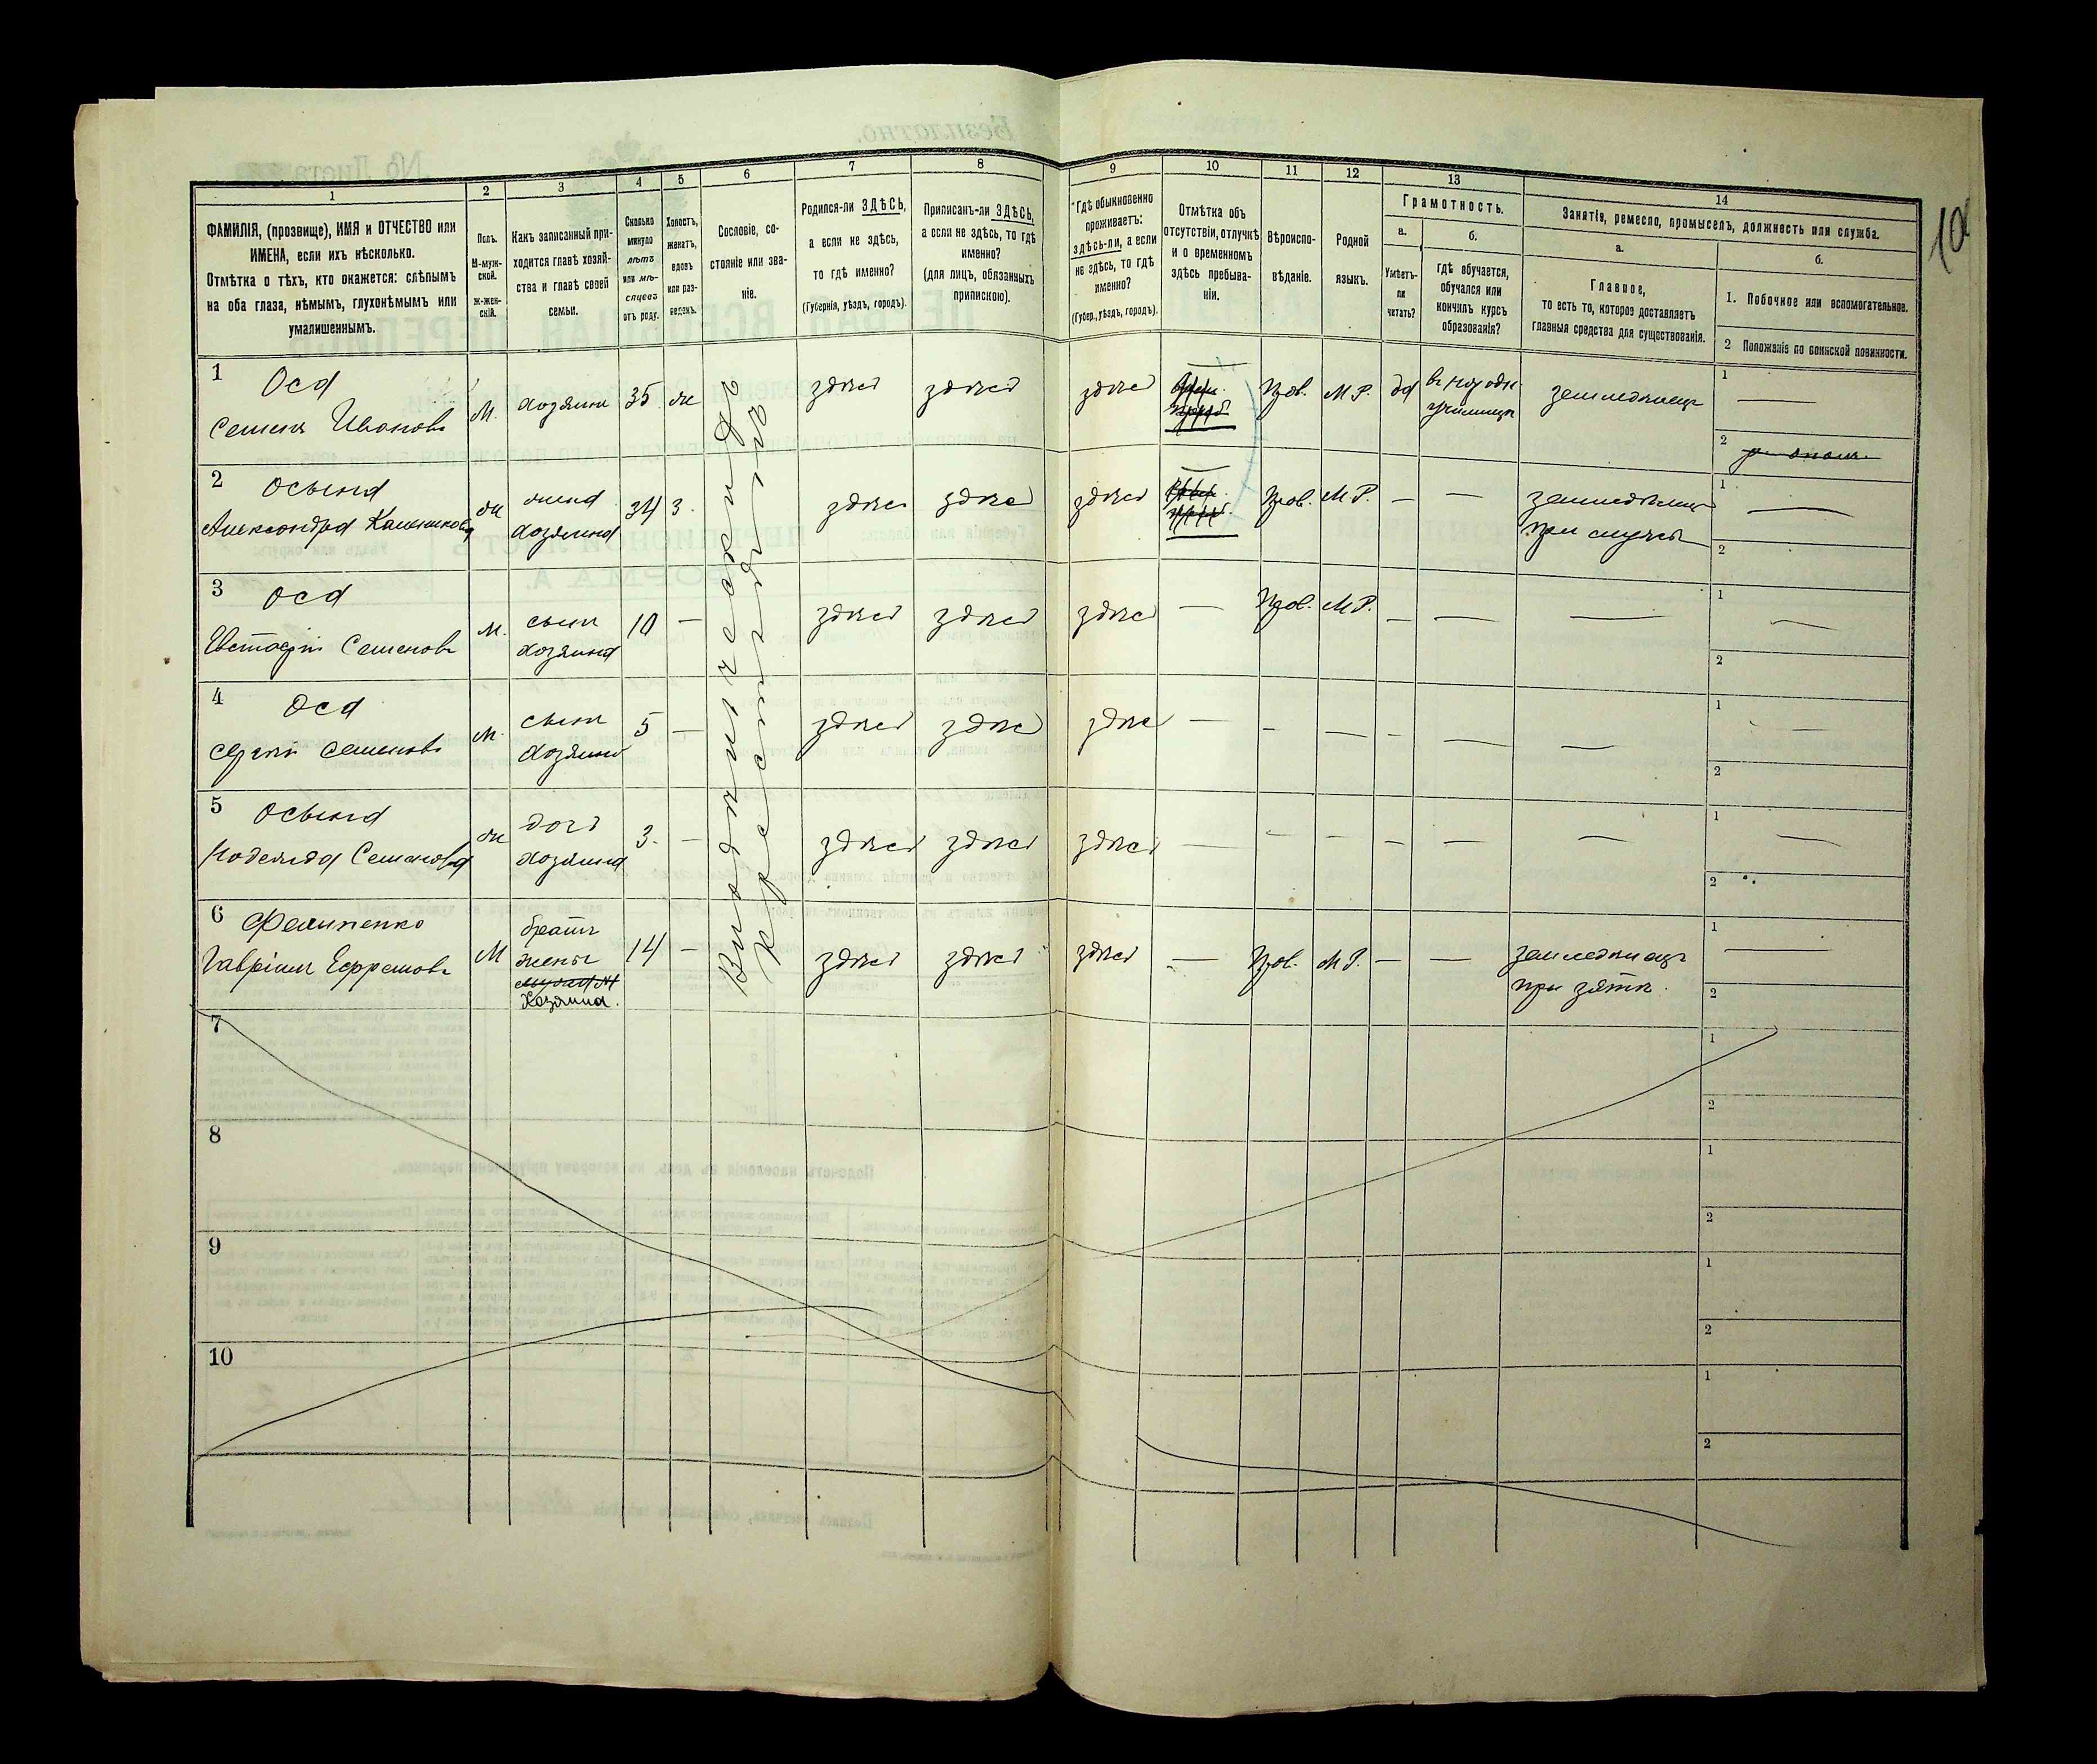 10
1
ФАМИЛІЯ, (прозвище), ИМЯ и ОТЧЕСТВО или
ИМЕНА, если ихъ нѣсколько.
Отмѣтка о тѣхъ, кто окажется: слѣпымъ
на оба глаза, нѣмымъ, глухонѣмымъ или
умалишеннымъ.
2
Полъ.
М-муж-
ской.
ж-жен-
скій.
3
Какъ записанный при-
ходится главѣ хозяй-
ства и главѣ своей
семьи.
4
Сколько
минуло
лѣтъ
или мѣ-
сяцевъ
отъ роду.
5
Холостъ,
женатъ,
вдовъ
или раз-
веденъ.
6
Сословіе, со-
стояніе или зва-
ніе.
7
Родился-ли ЗДѢСЬ,
а если не здѣсь,
то гдѣ именно?
(Губернія, уѣздъ, городъ).
8
Приписанъ-ли ЗДѢСЬ,
а если не здѣсь, то гдѣ
именно?
(для лицъ, обязанныхъ
припискою).
9
Гдѣ обыкновенно
проживаетъ:
здѣсь-ли, а если
не здѣсь, то гдѣ
именно?
(Губер., уѣздъ, городъ).
10
Отмѣтка объ
отсутствіи, отлучкѣ
и о временномъ
здѣсь пребыва-
ніи.
11
Вѣроиспо-
вѣданіе.
12
Родной
языкъ.
13
Грамотность.
а.
Умѣетъ-
ли
читать?
б.
гдѣ обучается,
обучался или
кончилъ курсъ
образованія?
14
Занятіе, ремесло, промыселъ, должность или служба.
а.
Главное,
то есть то, которое доставляетъ
главныя средства для существованія.
б.
1. Побочное или вспомогательное.
2 Положеніе по воинской повинности.
1
Оса
Семенъ Ивановъ
М.
хозяинъ
35
же
здѣсь
здѣсь
здѣсь
Прав.
М Р.
да
въ народн.
училищѣ
земледѣлецъ
1
2
2
Осына
Александра
ж
жена
хозяина
34
з.
здѣсь
здѣсь
здѣсь
Прав.
М Р.
—
—
при мужѣ
1
2
3
Оса
Евстафій Семеновъ
М.
сынъ
хозяина
10
—
здѣсь
здѣсь
здѣсь
—
Прав.
М Р.
—
—
—
1
2
4
Оса
Сергій Семеновъ
М.
сынъ
хозяина
5
—
здѣсь
здѣсь
здѣсь
—
—
—
—
—
—
1
2
5
Осына
Надежда Семенова
ж
дочь
хозяина
3.
—
здѣсь
здѣсь
здѣсь
—
—
—
—
—
—
1
2
6
Филипенко
Гавріилъ Ефремовъ
М
братъ
жены
Хозяина.
14
—
здѣсь
здѣсь
здѣсь
—
Прав.
М Р.
—
—
земледѣлецъ
при зятѣ.
1
2
7
1
2
8
1
2
9
1
2
10
1
2